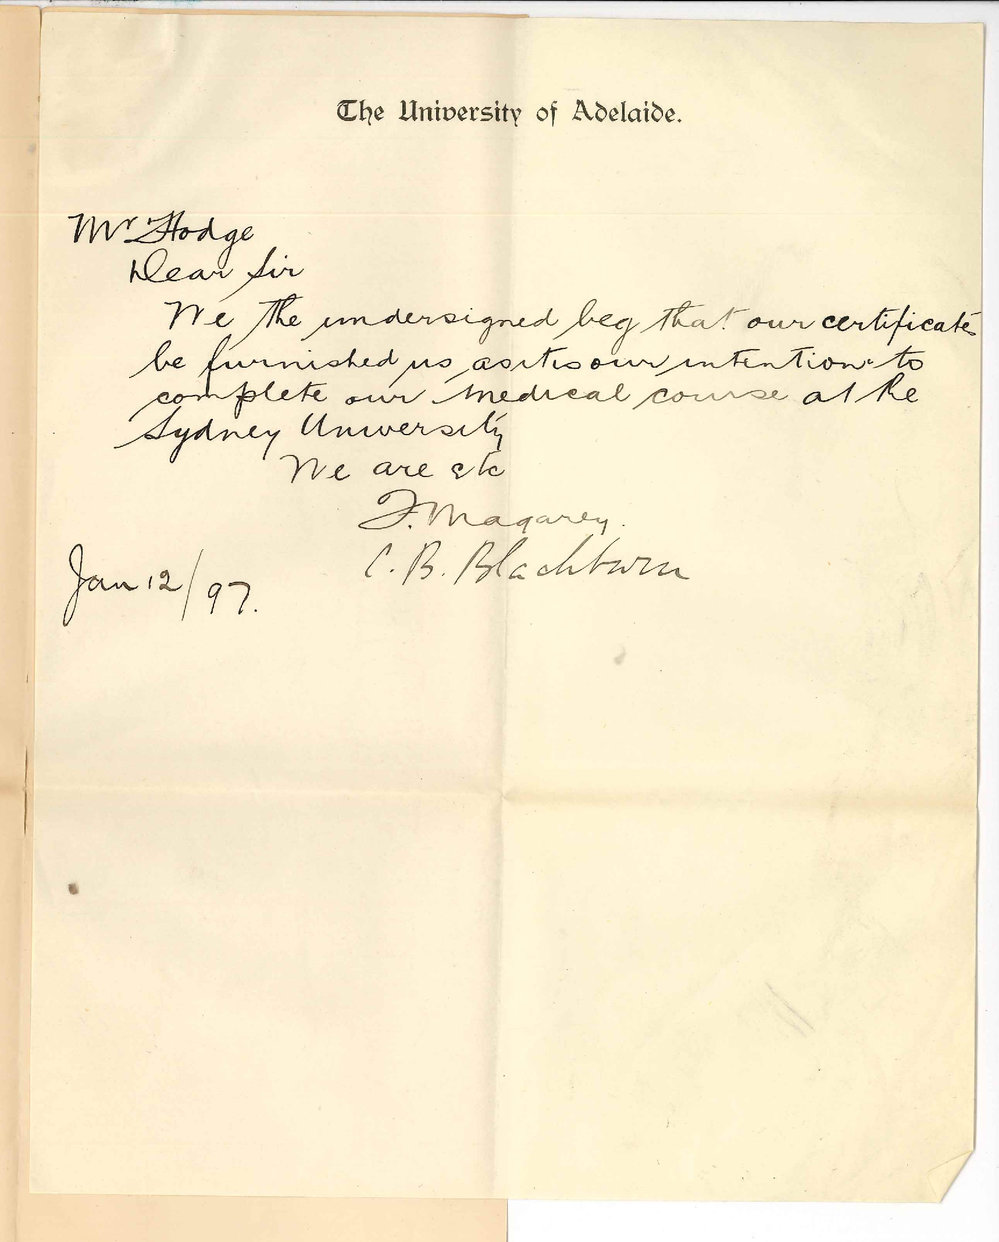 The University of Adelaide.
Mr Hodge
Dear Sir
We the undersigned beg that our certificates
be furnished us as it is our intention to
complete our medical course at the
Sydney University
We are etc
F. Magarey.
C. B. Blackburn
Jan 12/97.